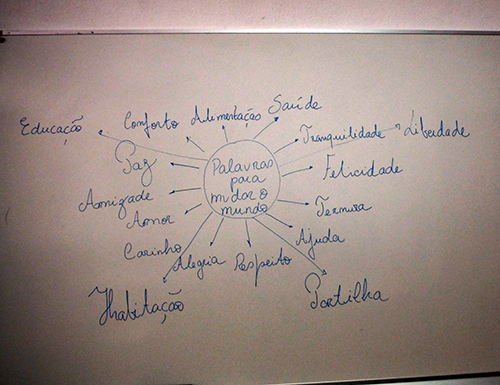 Educação
Conforto
Alimentação
Saúde
Tranquilidade
Liberdade
Paz
Palavras
para
mudar o
mundo
Felicidade
Amizade
Ternura
Amor
Carinho
Alegria
Respeito
Ajuda
Habitação
Partilha